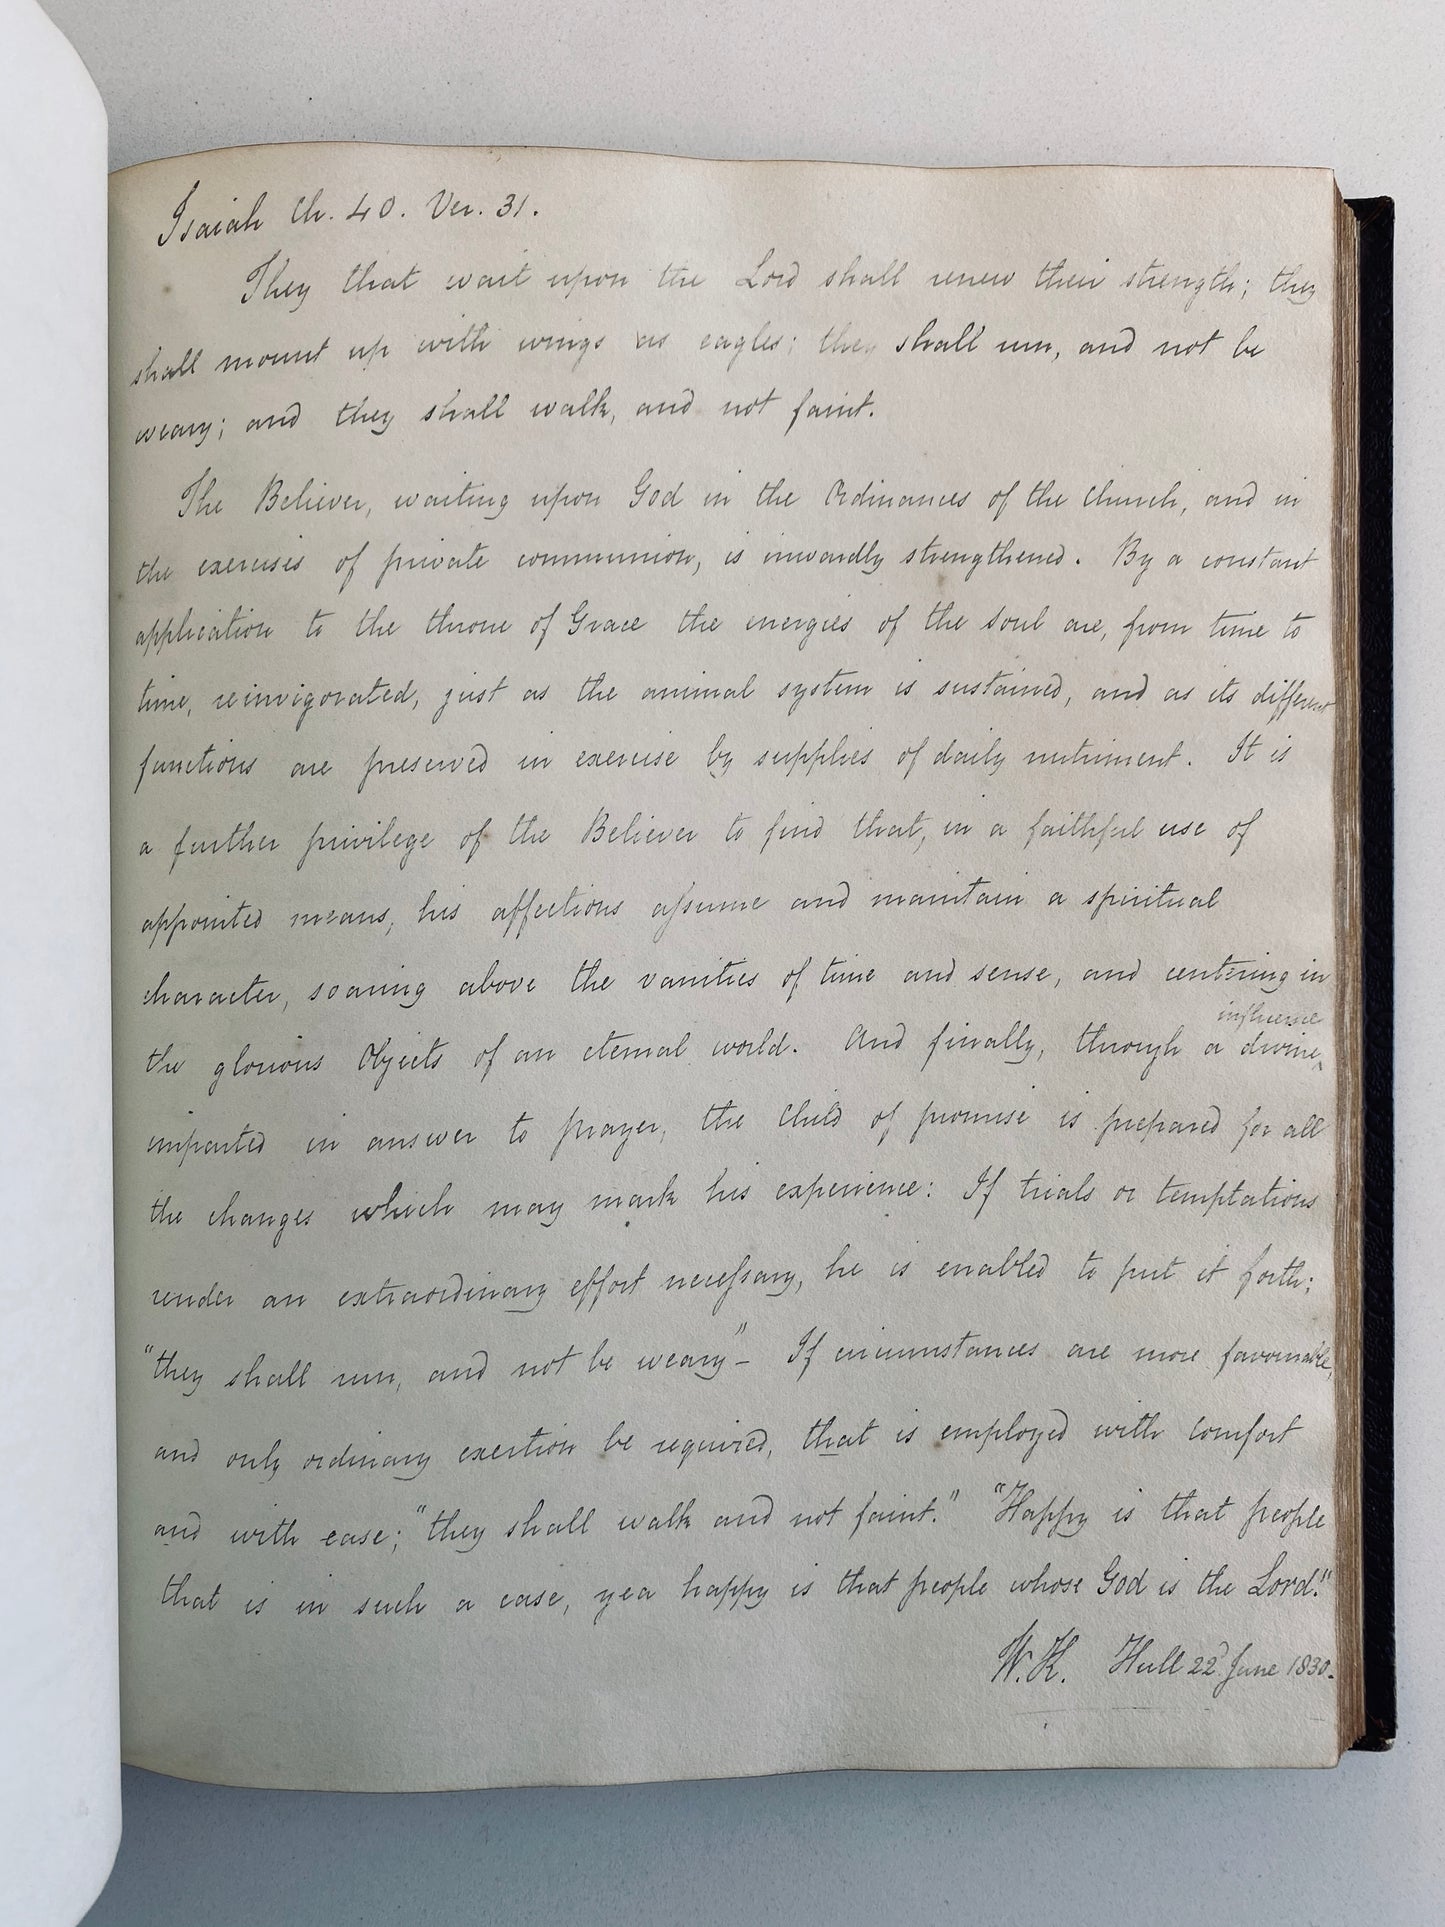 Isaiah Ch. 40. Ver. 31.
They that wait upon the Lord shall renew their strength; they
shall mount up with wings as eagles; they shall run, and not be
weary; and they shall walk, and not faint.
The Believer, waiting upon God in the Ordinances of the Church, and in
the exercises of private communion, is inwardly strengthened. By a constant
application to the throne of Grace the energies of the soul are, from time to
time, reinvigorated, just as the animal system is sustained, and as its different
functions are preserved in exercise by supplies of daily nutriment. It is
a further privilege of the Believer to find that, in a faithful use of
appointed means, his affections aſsume and maintain a spiritual
character, soaring above the vanities of time and sense, and centering in
influence
the glorious Objects of an eternal world. And finally, through a divine‸
imparted in answer to prayer, the Child of promise is prepared for all
the changes which may mark his experience: If trials or temptations
render an extraordinary effort neceſsary, he is enabled to put it forth;
"they shall run, and not be weary" – If circumstances are more favourable,
and only ordinary exertion be required, that is employed with comfort
and with ease; "they shall walk and not faint." "Happy is that people
that is in such a case, yea happy is that people whose God is the Lord."
W. H. Hull 22d June 1830.